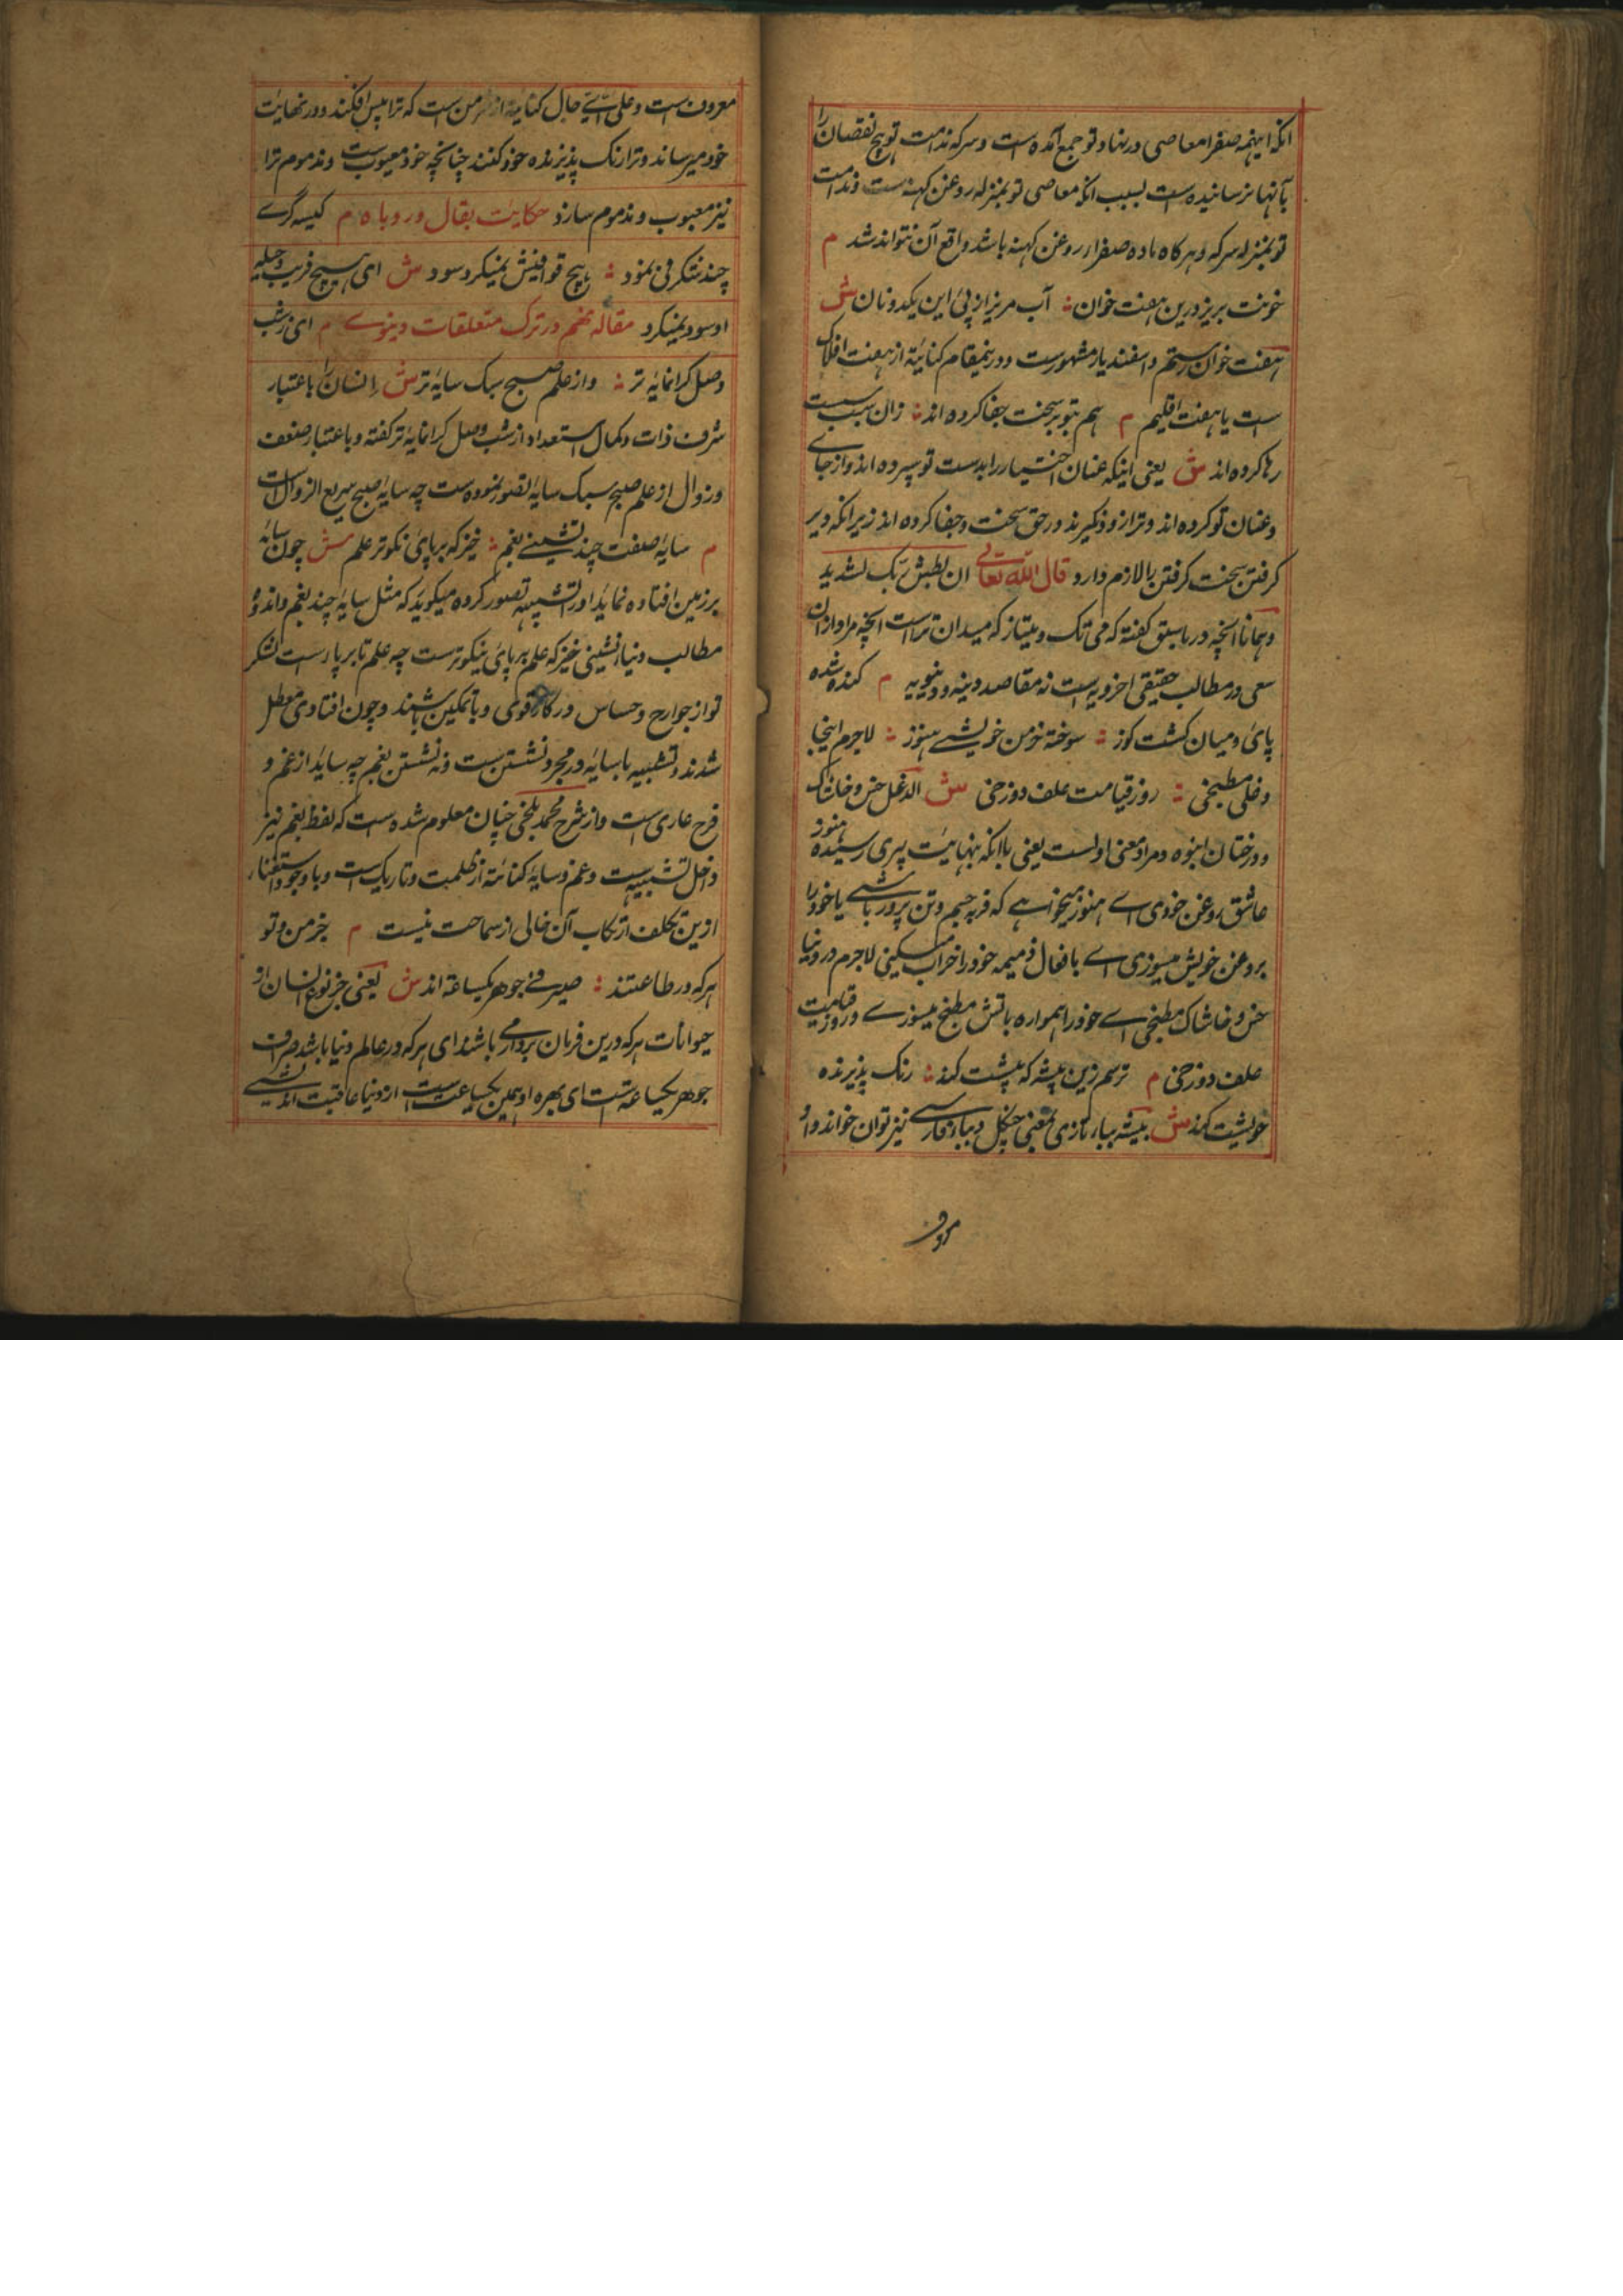 انکه اینهمه صفرا معاصی در نهاد تو جمع آمده است و سرکه ندامت تو هیچ نقصان را
بآنها نرسانیده است بسبب انکه معاصی تو بمنزله روغن کهنه است و ندامت
تو بمنزله سرکه و هرکاه ماده صفرا از روغن کهنه باشد واقع آن نتواند شد م
خونت بریز درین هفت خوان آب مریز از پئ این یکدو نان ش
هفت خوان رستم و اسفندیار مشهورست و درینمقام کنایة از هفت افلاک
ست یا هفت اقلیم م هم بتو بر سخت جفا کرده اند زان سبب سست
رها کرده اند ش یعنی اینکه عنان اختیار را بدست تو سپرده اند و از جای
و عنان تو کرده اند و ترا زود نکیرند در حق سخت و جفا کرده اند زیرا که دیر
کرفتن سخت کرفتن را لازم دارد قال الله تعالی ان بطش ربک لشدید
و همانا آنچه در ما سبق کفته که می تک و میتاز که میدان تراست آنچه مراد از ان
سعی در مطالب حقیقی اخرویه است نه مقاصد دینه و دنیویه م کنده شده
پای و میان کشت کوز سوخته خرمن خویشی هنوز لاجرم اینجا
دغلی مطبخی روز قیامت علف دوزخی ش الدغل خس و خاشاک
و درختان انبوه و مراد معنی اولست یعنی با انکه بنهایت پیری رسیده هنوز
عاشق روغن خودی اے هنوز میخواهے که فربه جسم و تن پرور باشے یا خود را
بروغن خویش میسوزی اے بافعال ذمیمه خود را خراب میکنی لاجرم در دنیا
خس و خاشاک مطبخی اے خود را همواره باتش مطبخ میسوزے و روز قیامت
علف دوزخی م ترسم زین بیشه که پشت کند رنک پذیرنده
خویشت کند ش بیشه بباء تازی بمعنی جنکل و بباء فارسے نیز توان خواند و او
معروف
معروف است و علی اے حال کنایة از است که ترا پس افکند و در نهایت
خود میرساند و ترا رنک پذیرنده خود کنند چنانچه خود معیوب است و مذموم ترا
نیز معیوب و مذموم سازد حکایت بقال و روباه م کیسه کرے
چند شکرفی نمود هیچ قوافیش نمیکرد سود ش ای هیچ فریب و حیله
او سود نمیکرد مقاله نهم در ترک متعلقات دینوے م ای ز شب
وصل کرانمایه تر و از علم صبح سبک سایه تر ش انسان را باعتبار
شرف ذات و کمال استعداد از شب وصل کرانمایه تر کفته و باعتبار ضعف
و زوال از علم صبح سبک سایه تصور نموده ست چه سایه صبح سریع الزوال است
م سایه صفت چند نشینے بغم خیز که بر پای نکوتر علم ش چون سایه
بر زمین افتاده نماید او را تشبیه تصور کرده میکوید که مثل سایه چند بغم و اندوه
مطالب دنیا نشینی خیز که علم بر پای نیکوترست چه علم تا بر پا است لشکر
تو از جوارح و حساس در کار قوی و با تمکین باشند و چون افتادی معطل
شدند و تشبیه با سایه در مجرد نشستن ست و نه نشستن بغم چه سایه از غم و
فرح عاری ست و از شرح محمد بلخی چنان معلوم شده است که لفظ بغم نیز
داخل تشبیه ست و غم و سایه کنایة از ظلمت و تاریک است و با وجود استغنا
ازین تکلف ارتکاب آن خالی از سماحت نیست م جز من و تو
هرکه در طاعتند صیرفے جوهر یکساعه اند ش یعنی جز نوع انسان از
حیوانات هرکه درین فرمان برداری باشند ای هرکه در عالم دنیا باشد صراف
جوهر یکساعه ست ای بهره او همین یکساعت است از دنیا عاقبت اندیشے